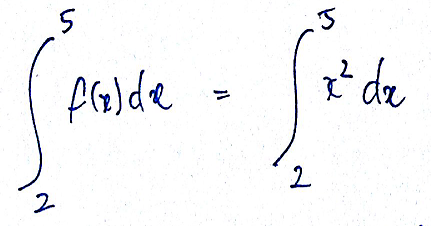 ∫₂⁵ f(x) dx = ∫₂⁵ x² dx